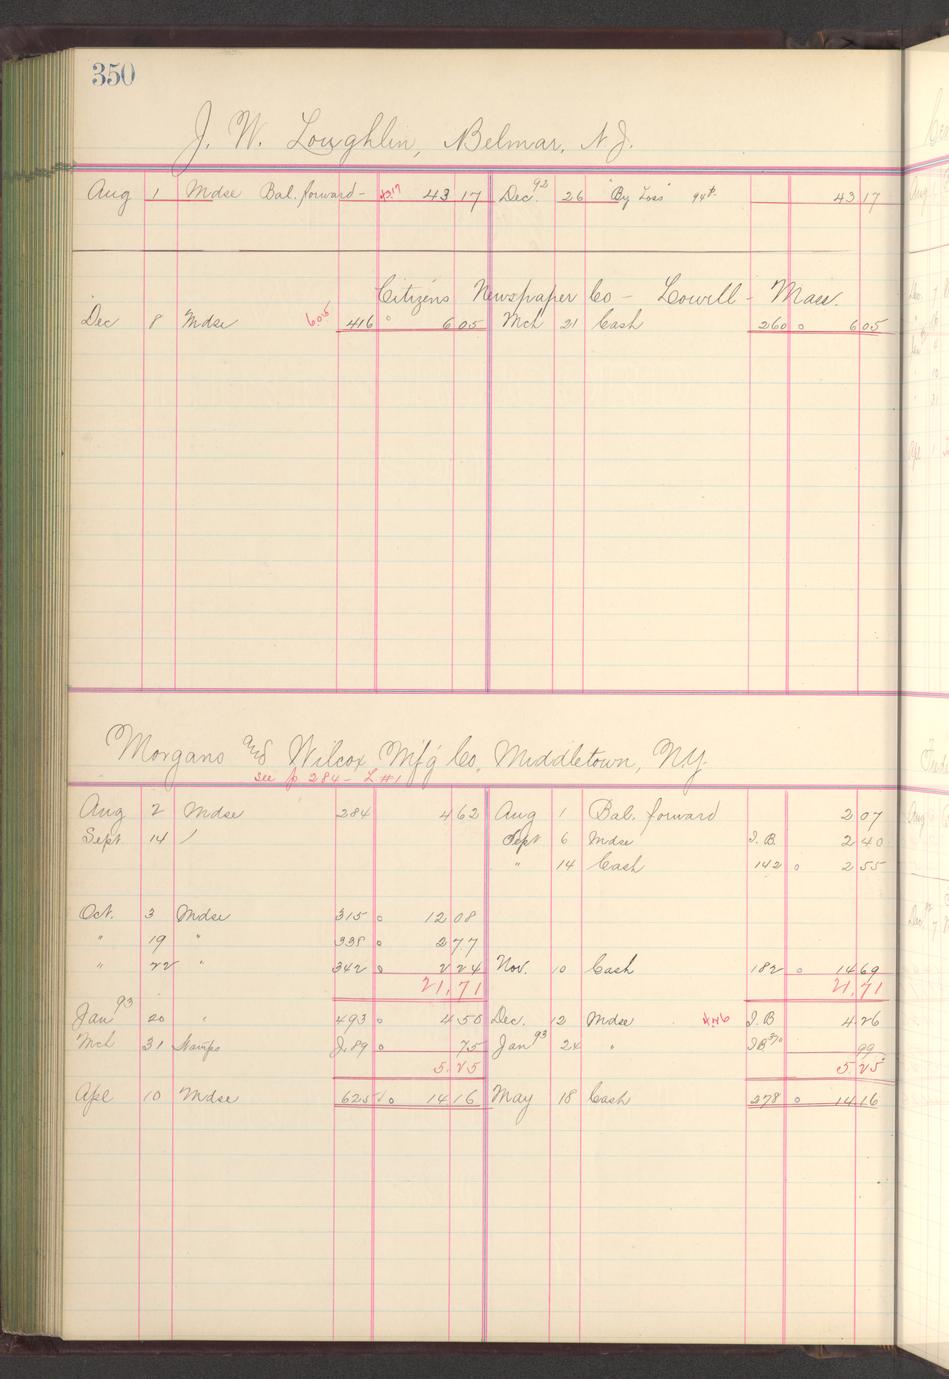 350
J. W. Loughlin, Belmar, N.J.
Aug 1 Mdse Bal. forward - 43.17 43 17 Dec. 92 26 "By Loss" 43 17
Citizens Newspaper Co - Lowell - Mass.
Dec 8 Mdse 6.05 416 o 6 05 Mch 21 Cash 260 o 6 05
Morgans and Wilcox Mf'g Co, Middletown, N.Y.
see p 284 - L #1
Aug 2 Mdse 284 4 62 Aug 1 Bal. forward 2 07
Sept 14 / Sept 6 Mdse I.B. 2 40
" 14 Cash 142 o 2 55
Oct. 3 Mdse 315 o 12 08
" 19 " 338 o 2 77
" 22 " 342 o 2 24 Nov. 10 Cash 182 o 14 69
21.71 21.71
Jan 93 20 " 493 o 4 50 Dec. 12 Mdse 4.26 I.B 4.26
Mch 31 Stamps J.89 o 75 Jan 93 24 " I.B 370 99
5.25 5.25
Apl 10 Mdse 625 o 14 16 May 18 Cash 278 o 14 16